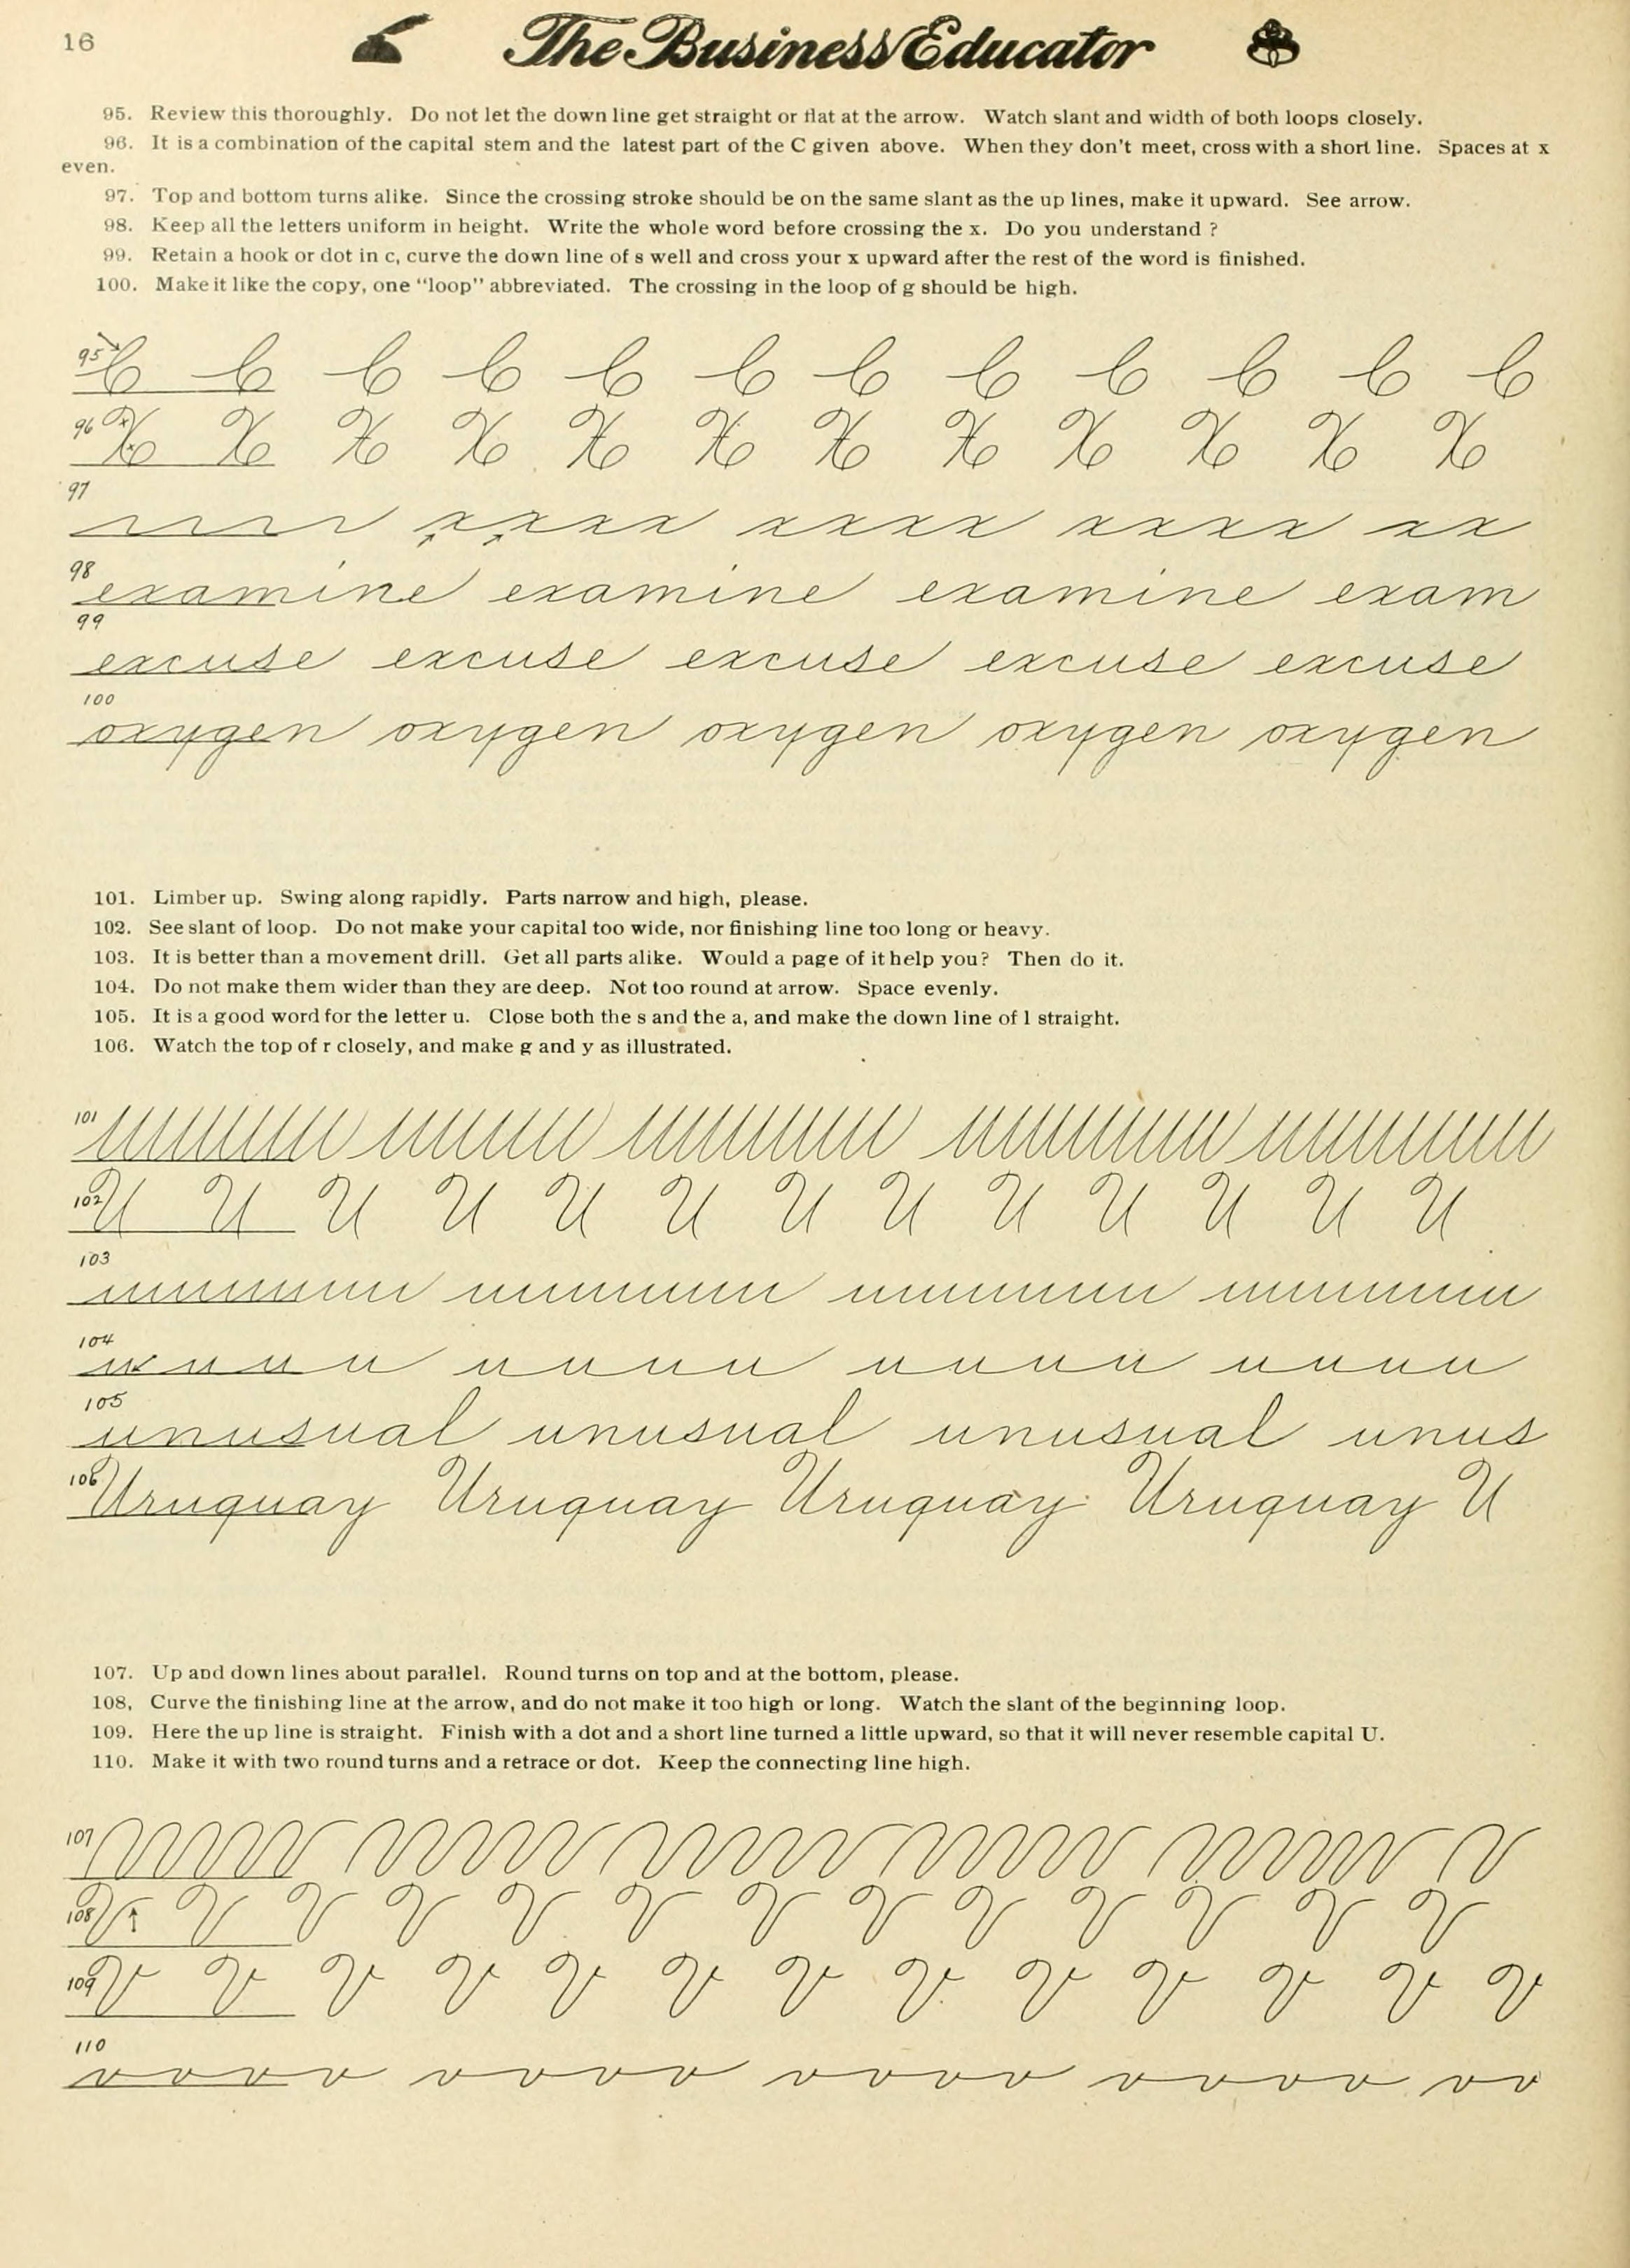 16
The Business Educator
95. Review this thoroughly. Do not let the down line get straight or flat at the arrow. Watch slant and width of both loops closely.
96. It is a combination of the capital stem and the latest part of the C given above. When they don't meet, cross with a short line. Spaces at x
even.
97. Top and bottom turns alike. Since the crossing stroke should be on the same slant as the up lines, make it upward. See arrow.
98. Keep all the letters uniform in height. Write the whole word before crossing the x. Do you understand ?
99. Retain a hook or dot in c, curve the down line of s well and cross your x upward after the rest of the word is finished.
100. Make it like the copy, one "loop" abbreviated. The crossing in the loop of g should be high.
95 C C C C C C C C C C C C
96 X X X X X X X X X X X X
97
x x x x x x x x x x x x x x
98
examine examine examine exam
99
excuse excuse excuse excuse excuse
100
oxygen oxygen oxygen oxygen oxygen
101. Limber up. Swing along rapidly. Parts narrow and high, please.
102. See slant of loop. Do not make your capital too wide, nor finishing line too long or heavy.
103. It is better than a movement drill. Get all parts alike. Would a page of it help you? Then do it.
104. Do not make them wider than they are deep. Not too round at arrow. Space evenly.
105. It is a good word for the letter u. Close both the s and the a, and make the down line of l straight.
106. Watch the top of r closely, and make g and y as illustrated.
101
102 U U U U U U U U U U U U U
103
104
u u u u u u u u u u u u u u u u
105
unusual unusual unusual unus
106 Uruguay Uruguay Uruguay Uruguay U
107. Up and down lines about parallel. Round turns on top and at the bottom, please.
108, Curve the finishing line at the arrow, and do not make it too high or long. Watch the slant of the beginning loop.
109. Here the up line is straight. Finish with a dot and a short line turned a little upward, so that it will never resemble capital U.
110. Make it with two round turns and a retrace or dot. Keep the connecting line high.
107
108 V V V V V V V V V V V V V
109 V V V V V V V V V V V V V
110
v v v v v v v v v v v v v v v v v v